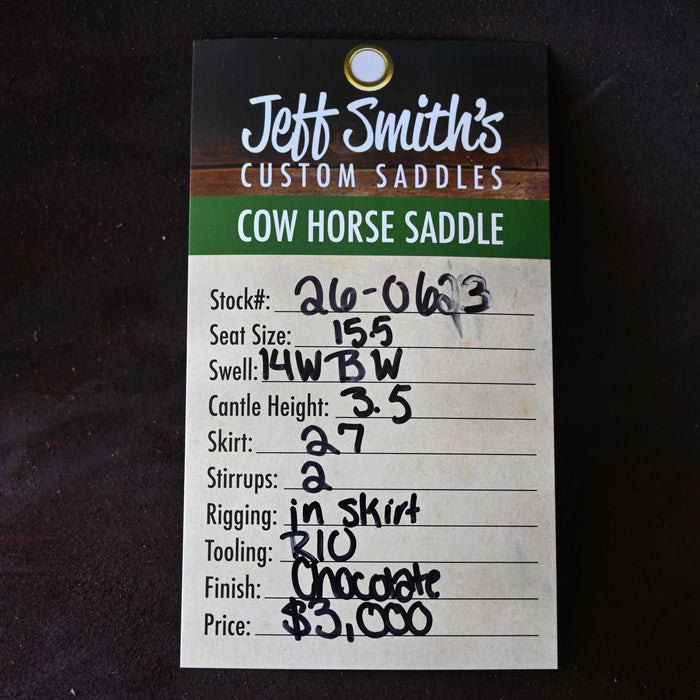 Jeff Smith's
CUSTOM SADDLES
COW HORSE SADDLE
Stock#: 26-0623
Seat Size: 15.5
Swell: 14W BW
Cantle Height: 3.5
Skirt: 27
Stirrups: 2
Rigging: in skirt
Tooling: R10
Finish: Chocolate
Price: $3,000